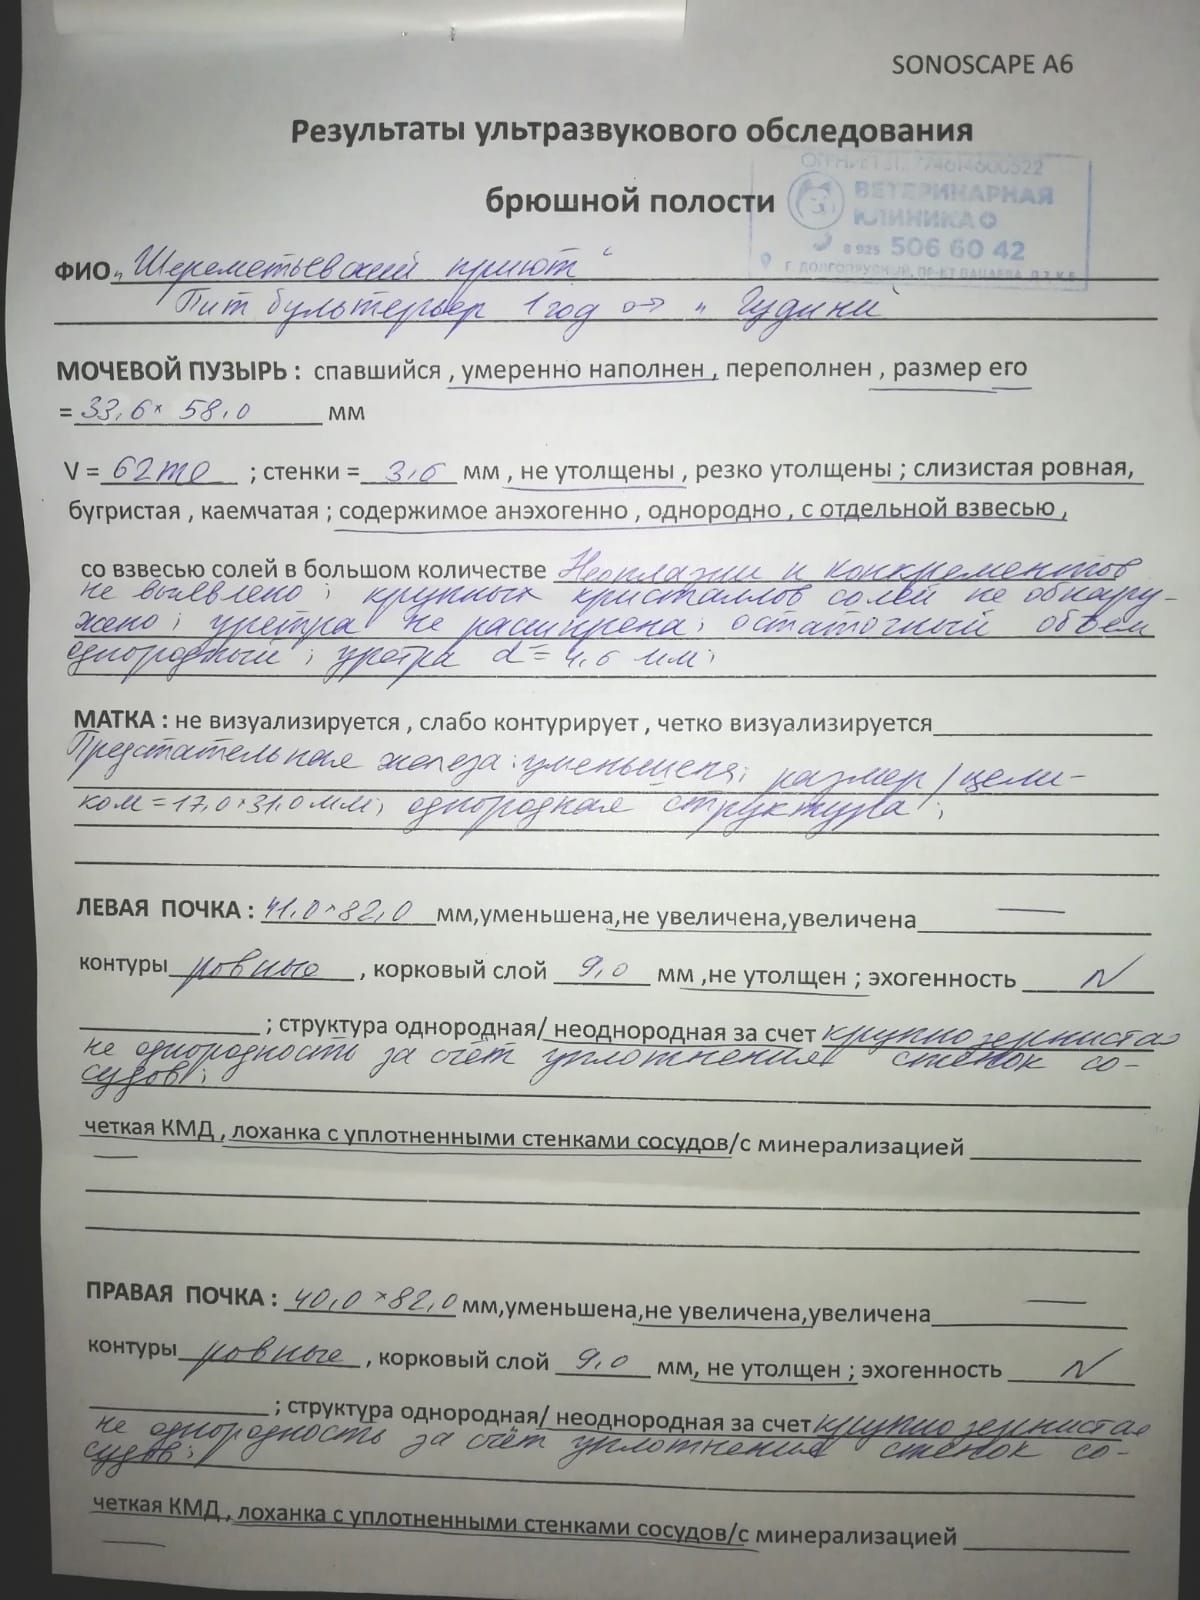 SONOSCAPE A6
Результаты ультразвукового обследования
брюшной полости
ВЕТЕРИНАРНАЯ
КЛИНИКА
8 925 506 60 42
Г. ДОЛГОПРУДНЫЙ, ПР-КТ ПАЦАЕВА
ФИО „Шереметьевский приют“
Пит бультерьер 1 год „Гудини“
МОЧЕВОЙ ПУЗЫРЬ : спавшийся , умеренно наполнен , переполнен , размер его
= 33,6 × 58,0 мм
V = 62 ml ; стенки = 3,6 мм , не утолщены , резко утолщены ; слизистая ровная,
бугристая , каемчатая ; содержимое анэхогенно , однородно , с отдельной взвесью ,
со взвесью солей в большом количестве Неоплазии и конкрементов
не выявлено ; крупных кристаллов солей не обнару-
жено ; уретра не расширена ; остаточный объем
однородный ; уретра d = 4,6 мм ;
МАТКА : не визуализируется , слабо контурирует , четко визуализируется
Предстательная железа : уменьшена ; размер / цели-
ком = 17,0 × 31,0 мм ; однородная структура ;
ЛЕВАЯ ПОЧКА : 41,0 × 82,0 мм,уменьшена,не увеличена,увеличена —
контуры ровные , корковый слой 9,0 мм ,не утолщен ; эхогенность N
; структура однородная/ неоднородная за счет крупнозернистая
не однородность за счёт уплотнения стенок со-
судов ;
четкая КМД , лоханка с уплотненными стенками сосудов/с минерализацией
—
ПРАВАЯ ПОЧКА : 40,0 × 82,0 мм,уменьшена,не увеличена,увеличена —
контуры ровные , корковый слой 9,0 мм, не утолщен ; эхогенность N
; структура однородная/ неоднородная за счет крупнозернистая
не однородность за счёт уплотнения стенок со-
судов ;
четкая КМД , лоханка с уплотненными стенками сосудов/с минерализацией
—